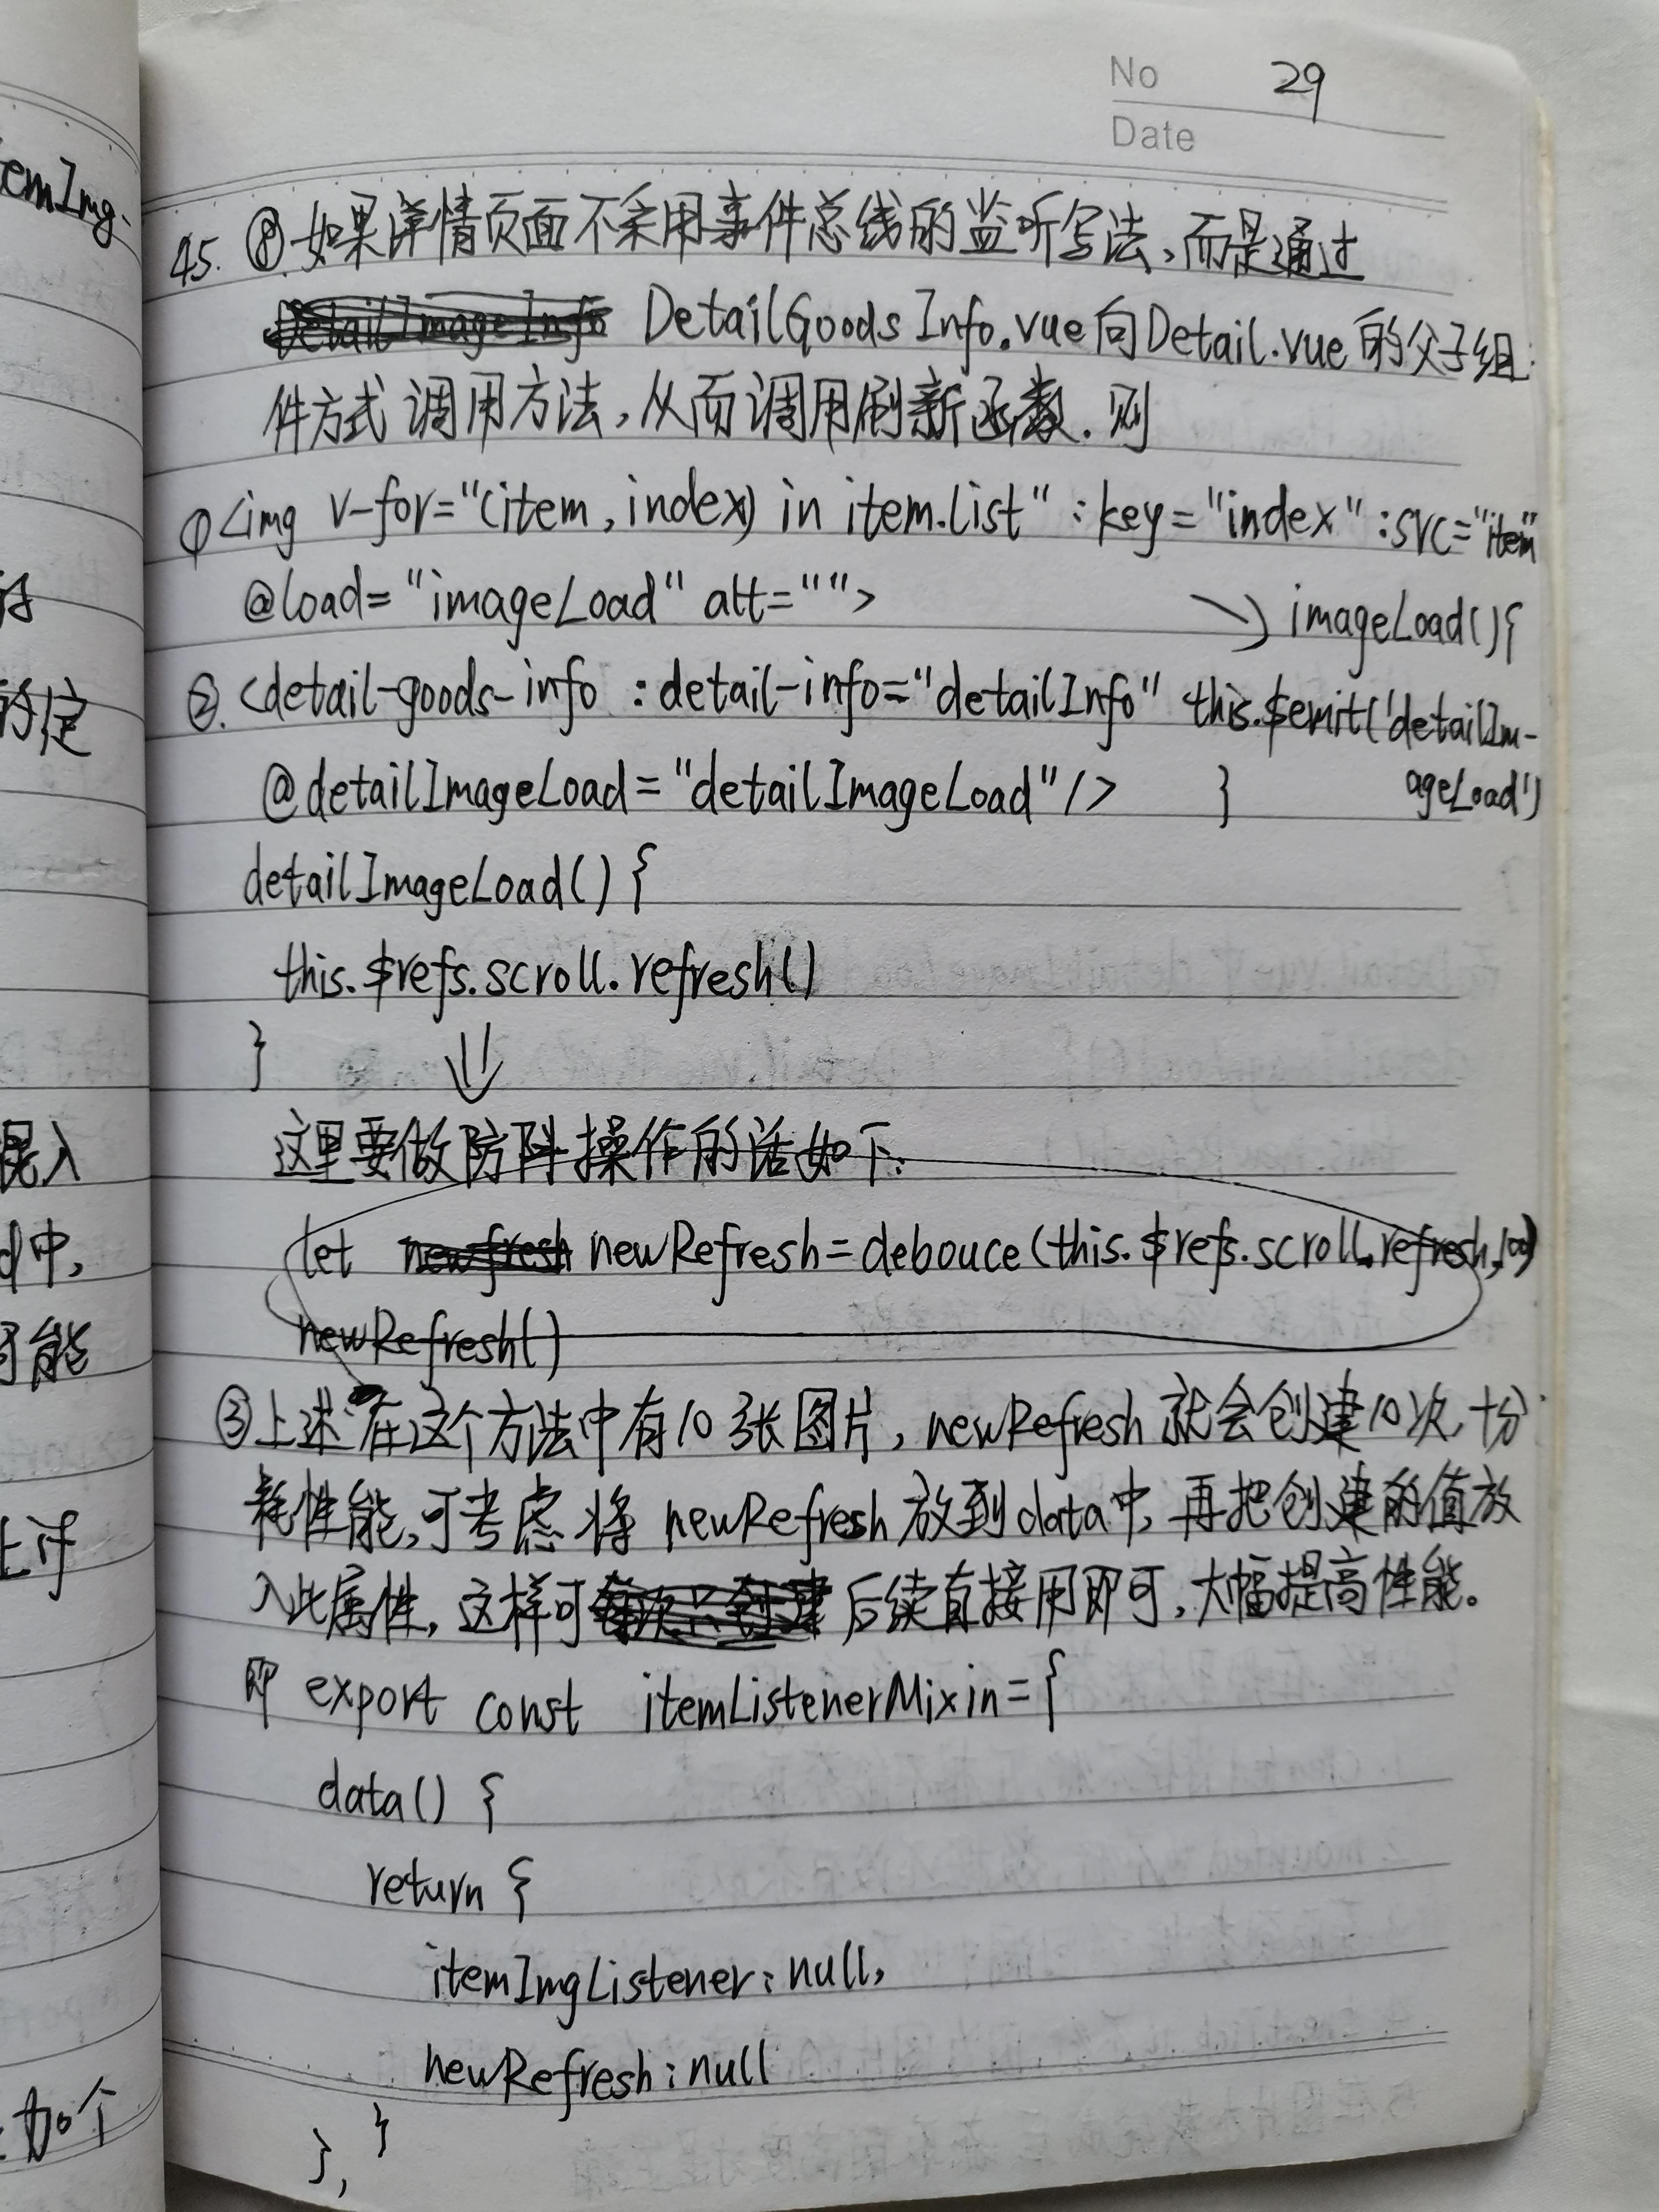 No 29
Date
45. ⑧.如果详情页面不采用事件总线的监听写法,而是通过
DetailGoodsInfo.vue向Detail.vue的父子组
件方式调用方法,从而调用刷新函数.则
①<img v-for="(item,index) in item.list" :key="index" :src="item"
@load="imageLoad" alt="">
imageLoad(){
②.<detail-goods-info :detail-info="detailInfo"
this.$emit('detailIm-
@detailImageLoad="detailImageLoad"/>
ageLoad')
}
detailImageLoad(){
this.$refs.scroll.refresh()
}
这里要做防抖操作的话如下:
let newRefresh=debouce(this.$refs.scroll.refresh,100)
newRefresh()
③上述在这个方法中有10张图片,newRefresh就会创建10次,十分
耗性能,可考虑将newRefresh放到data中,再把创建的值放
入此属性,这样可后续直接用即可,大幅提高性能。
即 export const itemListenerMixin={
data() {
return {
itemImgListener:null,
newRefresh:null
}
},
emImg-
的定
混入
d中,
可能
加个